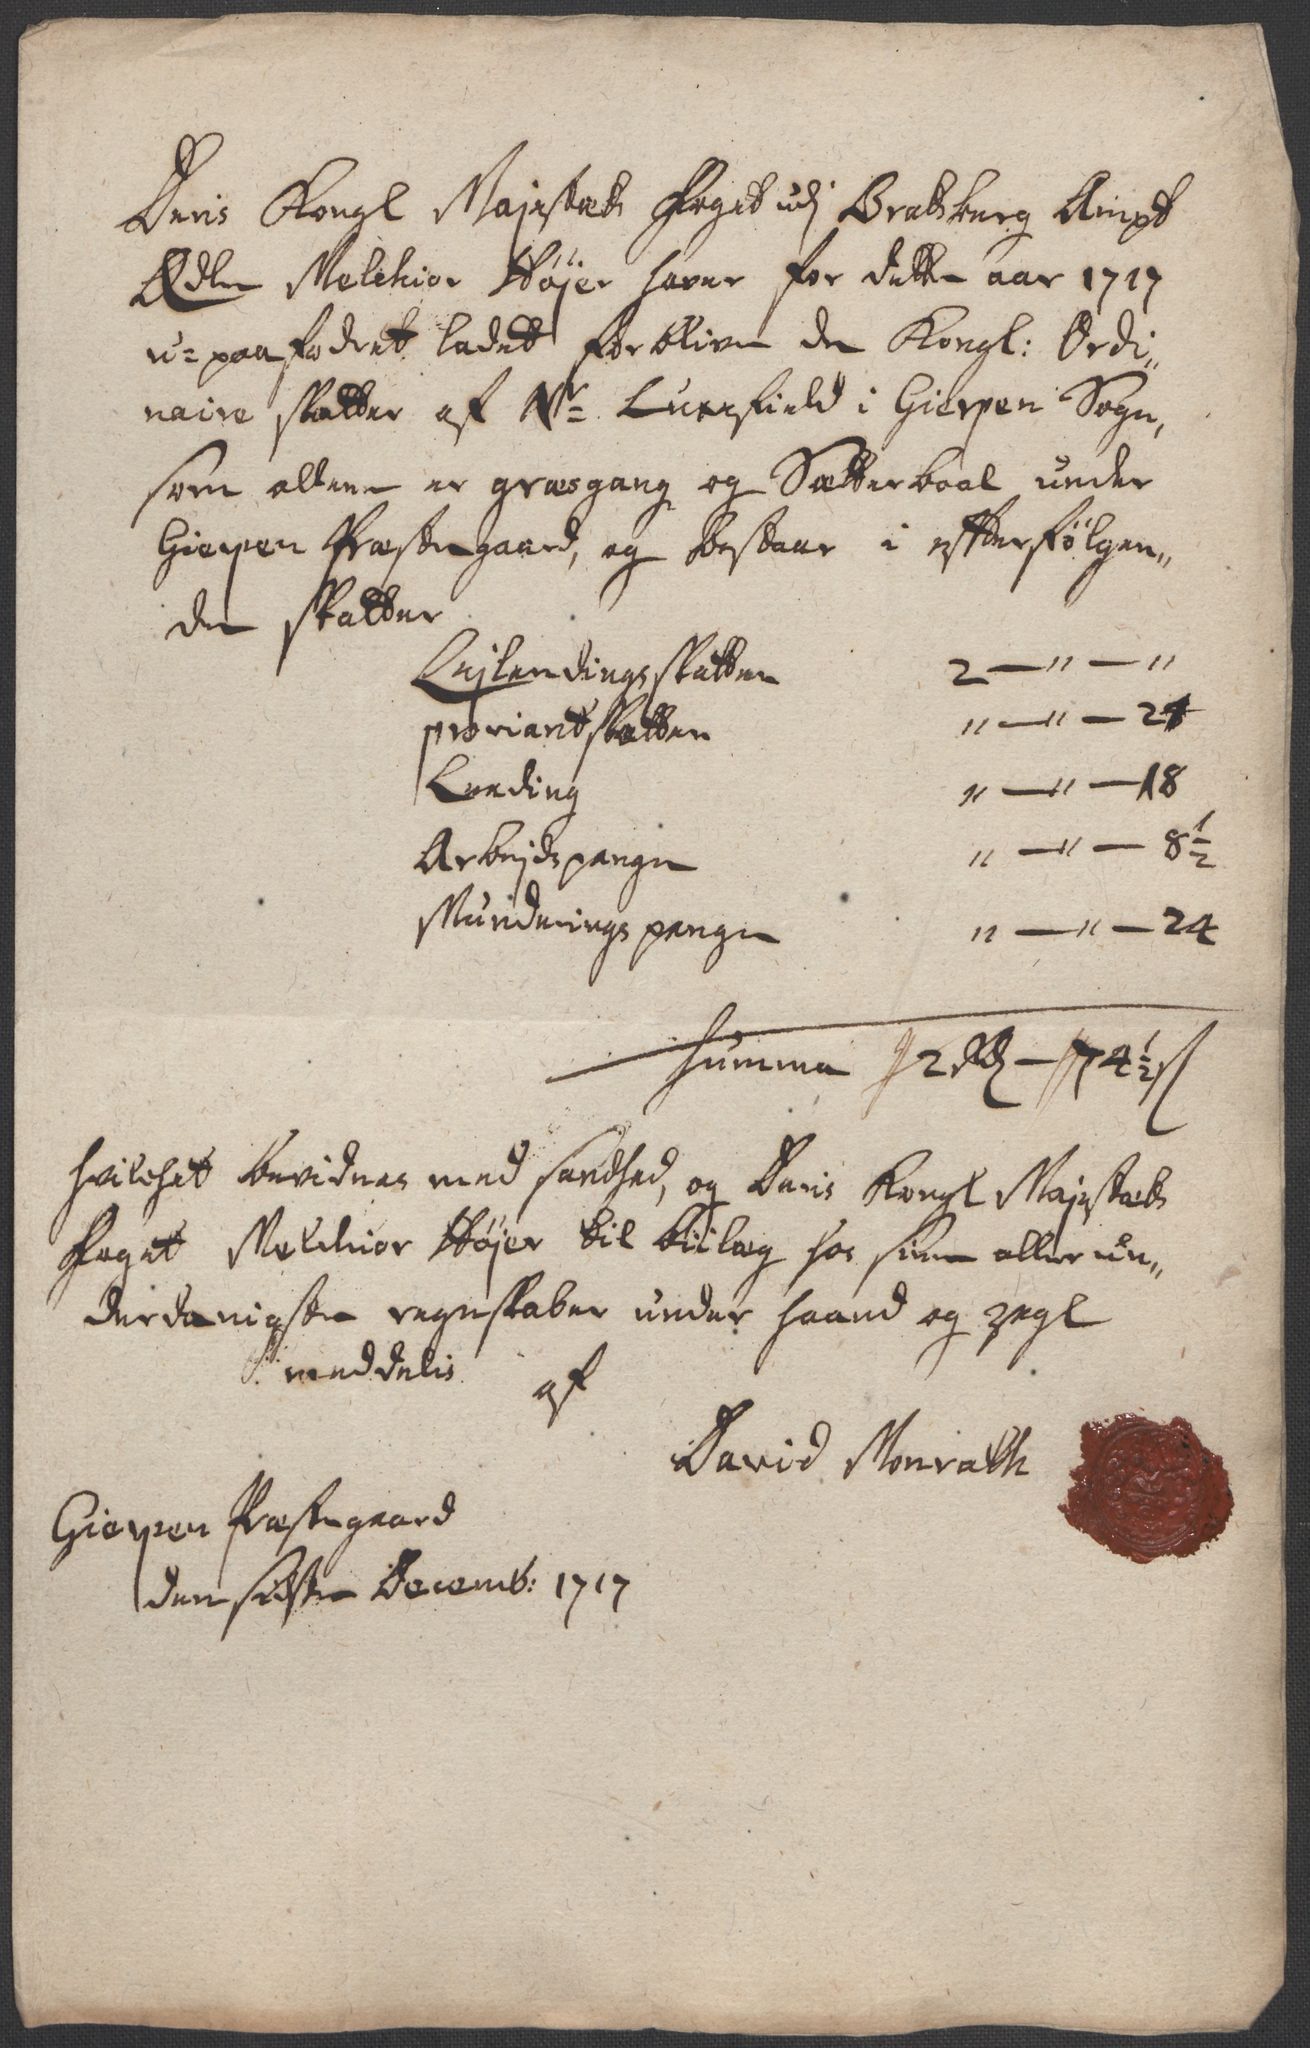 Deris Kongl Majestæts Foget udj Bratsberg Ampt
Ædle Melchior Höjer haver for dette aar 1717
u-paafodret ladet forblive de Kongl: Ordi„
naire skatter af Nr: Luxefield i Gierpen Sogn,
som allene er græsgang og Sætterboel under
Gierpen Præstegaard, og bestaar i efterfölgen„
de skatter
Lejlendings skatten 2 — " — "
proviant skatten " — " — 24
Leeding " — " — 18
Arbejdspenge " — " — 8½
Munderings penge " — " — 24
Summa 2 Rdl — 74½ s
hvilchet bevidnes med sandhed, og Deris Kongl Majestæts
Foget Melchior Höjer til biilæg hos sine allerun„
derdanigste regnskaber under haand og zegl
meddelis af
David Monrath
Gierpen Præstegaard
den sidste Decemb: 1717